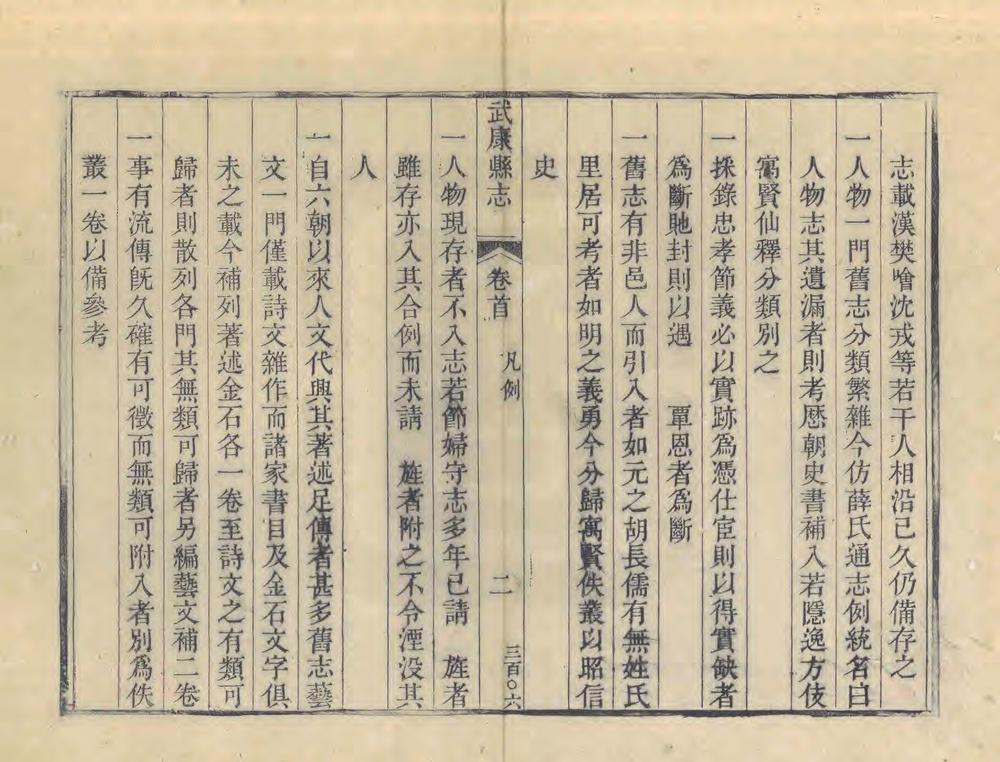 志載漢樊噲沈戎等若干人相沿已久仍備存之
一人物一門舊志分類繁雜今仿薛氏通志例統名曰
人物志其遺漏者則考厯朝史書補入若隱逸方伎
寓賢仙釋分類別之
一採錄忠孝節義必以實跡爲憑仕宦則以得實缺者
爲斷貤封則以遇　覃恩者爲斷
一舊志有非邑人而引入者如元之胡長儒有無姓氏
里居可考者如明之義勇今分歸寓賢佚叢以昭信
史
武康縣志　卷首　凡例　二　三百〇六
一人物現存者不入志若節婦守志多年已請　旌者
雖存亦入其合例而未請　旌者附之不令湮没其
人
一自六朝以來人文代興其著述足傳者甚多舊志藝
文一門僅載詩文雜作而諸家書目及金石文字俱
未之載今補列著述金石各一卷至詩文之有類可
歸者則散列各門其無類可歸者另編藝文補二卷
一事有流傳旣久確有可徵而無類可附入者別爲佚
叢一卷以備參考